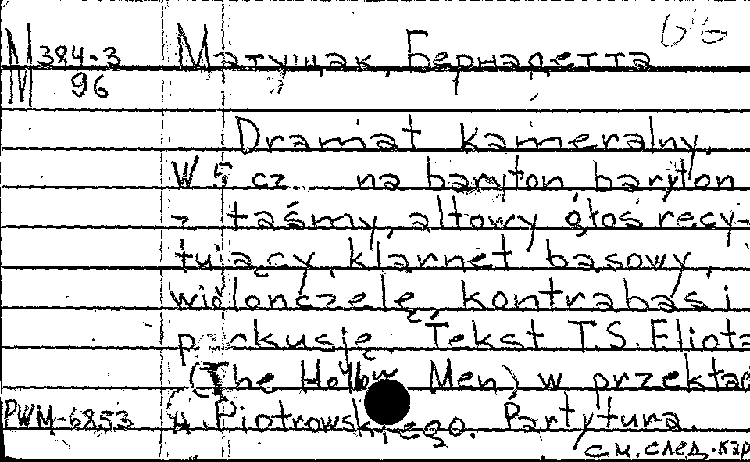 М 384-3 Матущак, Бернадетта
96
Dramat kameralny.
W 5 cz. na baryton, baryton
z taśmy, altowy głos recy-
tujący, klarnet basowy,
wiolonczelę, kontrabas i
perkusję. Tekst T.S. Eliota
(The Hollow Men) w przekład
PWM-6853 A. Piotrowskiego. Partytura.
См. след. кар